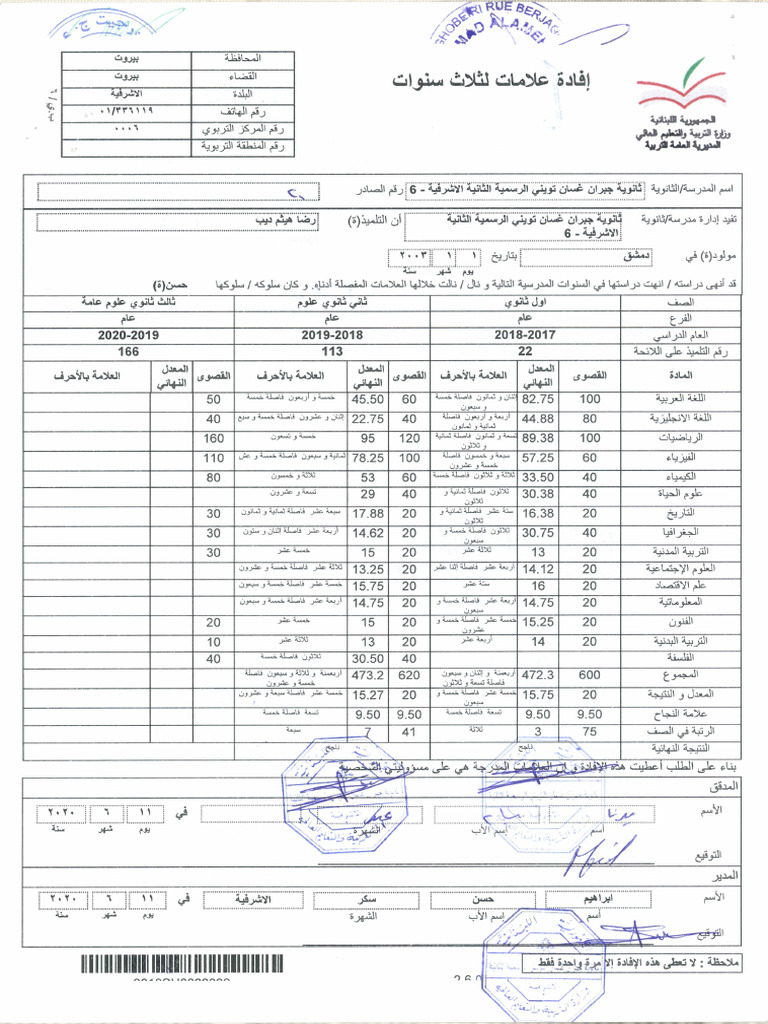 GHOBEIRI RUE BERJAC
MAD ALAMEH
المحافظة بيروت
القضاء بيروت
البلدة الاشرفية
رقم الهاتف ٠١/٣٣٦١١٩
رقم المركز التربوي ٠٠٠٦
رقم المنطقة التربوية
إفادة علامات لثلاث سنوات
الجمهورية اللبنانية
وزارة التربية والتعليم العالي
المديرية العامة للتربية
اسم المدرسة/الثانوية ثانوية جبران غسان تويني الرسمية الثانية الاشرفية - 6 رقم الصادر
تفيد إدارة مدرسة/ثانوية ثانوية جبران غسان تويني الرسمية الثانية الاشرفية - 6 أن التلميذ(ة) رضا هيثم ديب
مولود(ة) في دمشق بتاريخ ١ ١ ٢٠٠٣
يوم شهر سنة
قد أنهى دراسته / انهت دراستها في السنوات المدرسية التالية و نال / نالت خلالها العلامات المفصلة أدناه. و كان سلوكه / سلوكها حسن(ة)
الصف اول ثانوي ثاني ثانوي علوم ثالث ثانوي علوم عامة
الفرع عام عام عام
العام الدراسي 2018-2017 2019-2018 2020-2019
رقم التلميذ على اللائحة 22 113 166
المادة القصوى المعدل النهائي العلامة بالأحرف القصوى المعدل النهائي العلامة بالأحرف القصوى المعدل النهائي العلامة بالأحرف
اللغة العربية 100 82.75 إثنان و ثمانون فاصلة خمسة و سبعون 60 45.50 خمسة و أربعون فاصلة خمسة 50
اللغة الانجليزية 80 44.88 أربعة و أربعون فاصلة ثمانية و ثمانون 40 22.75 إثنان و عشرون فاصلة خمسة و سبع 40
الرياضيات 100 89.38 تسعة و ثمانون فاصلة ثمانية و ثلاثون 120 95 خمسة و تسعون 160
الفيزياء 60 57.25 سبعة و خمسون فاصلة خمسة و عشرون 100 78.25 ثمانية و سبعون فاصلة خمسة و عش 110
الكيمياء 40 33.50 ثلاثة و ثلاثون فاصلة خمسة 60 53 ثلاثة و خمسون 80
علوم الحياة 40 30.38 ثلاثون فاصلة ثمانية و ثلاثون 40 29 تسعة و عشرون
التاريخ 20 16.38 ستة عشر فاصلة ثمانية و ثلاثون 20 17.88 سبعة عشر فاصلة ثمانية و ثمانون 30
الجغرافيا 40 30.75 ثلاثون فاصلة خمسة و سبعون 20 14.62 أربعة عشر فاصلة إثنان و ستون 30
التربية المدنية 20 13 ثلاثة عشر 20 15 خمسة عشر 30
العلوم الإجتماعية 20 14.12 أربعة عشر فاصلة إثنا عشر 20 13.25 ثلاثة عشر فاصلة خمسة و عشرون
علم الاقتصاد 20 16 ستة عشر 20 15.75 خمسة عشر فاصلة خمسة و سبعون
المعلوماتية 20 14.75 أربعة عشر فاصلة خمسة و سبعون 20 14.75 أربعة عشر فاصلة خمسة و سبعون
الفنون 20 15.25 خمسة عشر فاصلة خمسة و عشرون 20 15 خمسة عشر 20
التربية البدنية 20 14 أربعة عشر 20 13 ثلاثة عشر 10
الفلسفة 40 30.50 ثلاثون فاصلة خمسة 40
المجموع 600 472.3 أربعمئة و إثنان و سبعون فاصلة تسعة و ثلاثون 620 473.2 أربعمئة و ثلاثة و سبعون فاصلة خمسة و عشرون
المعدل و النتيجة 20 15.75 خمسة عشر فاصلة خمسة و سبعون 20 15.27 خمسة عشر فاصلة سبعة و عشرون
علامة النجاح 9.50 9.50 تسعة فاصلة خمسة 9.50 9.50 تسعة فاصلة خمسة
الرتبة في الصف 75 3 ثلاثة 41 7 سبعة
النتيجة النهائية ناجح ناجح
بناء على الطلب أعطيت هذه الإفادة و ان العلامات المدرجة هي على مسؤوليتي الشخصية
المدقق
الأسم في ١١ ٦ ٢٠٢٠
أسم إسم الأب الشهرة يوم شهر سنة
التوقيع
المدير
الأسم ابراهيم حسن سكر الاشرفية في ١١ ٦ ٢٠٢٠
أسم إسم الأب الشهرة يوم شهر سنة
التوقيع
ملاحظة : لا تعطى هذه الإفادة إلا مرة واحدة فقط